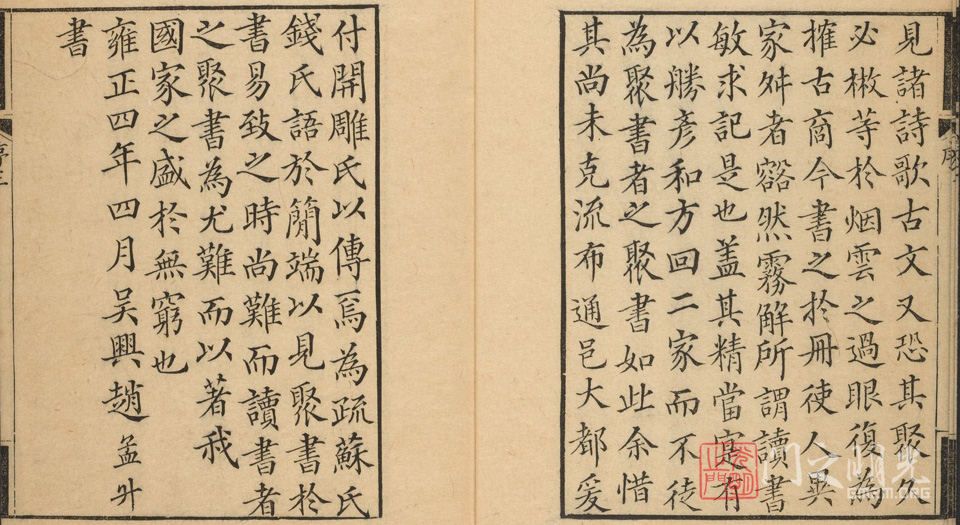 見諸詩歌古文又恐其聚久
必㪚等於烟雲之過眼復為
搉古商今書之於冊使人異
家舛者豁然霧解所謂讀書
敏求記是也盖其精當寔有
以勝彥和方回二家而不徒
為聚書者之聚書如此余惜
其尚未克流布通邑大都爰
付開雕氏以傳焉為疏蘇氏
錢氏語於簡端以見聚書於
書易致之時尚難而讀書者
之聚書為尤難而以著我
國家之盛於無窮也
雍正四年四月吳興趙孟升
書
序三